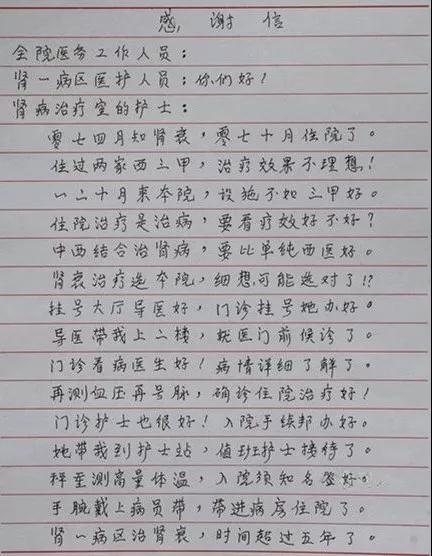 感谢信
全院医务工作人员：
肾一病区医护人员：你们好！
肾病治疗室的护士：
零七四月知肾衰，零七十月住院了。
住过两家西三甲，治疗效果不理想！
一二十月来本院，设施不如三甲好。
住院治疗是治病，要看疗效好不好？
中西结合治肾病，要比单纯西医好。
肾衰治疗选本院，细想可能选对了!?
挂号大厅导医好，门诊挂号她办好。
导医带我上二楼，就医门前候诊了。
门诊看病医生好！病情详细了解了。
再测血压再号脉，确诊住院治疗好！
门诊护士也很好！入院手续帮办好。
她带我到护士站，值班护士接待了。
秤至测高量体温，入院须知名签好。
手腕戴上病员带，带进病房住院了。
肾一病区治肾衰，时间超过五年了。